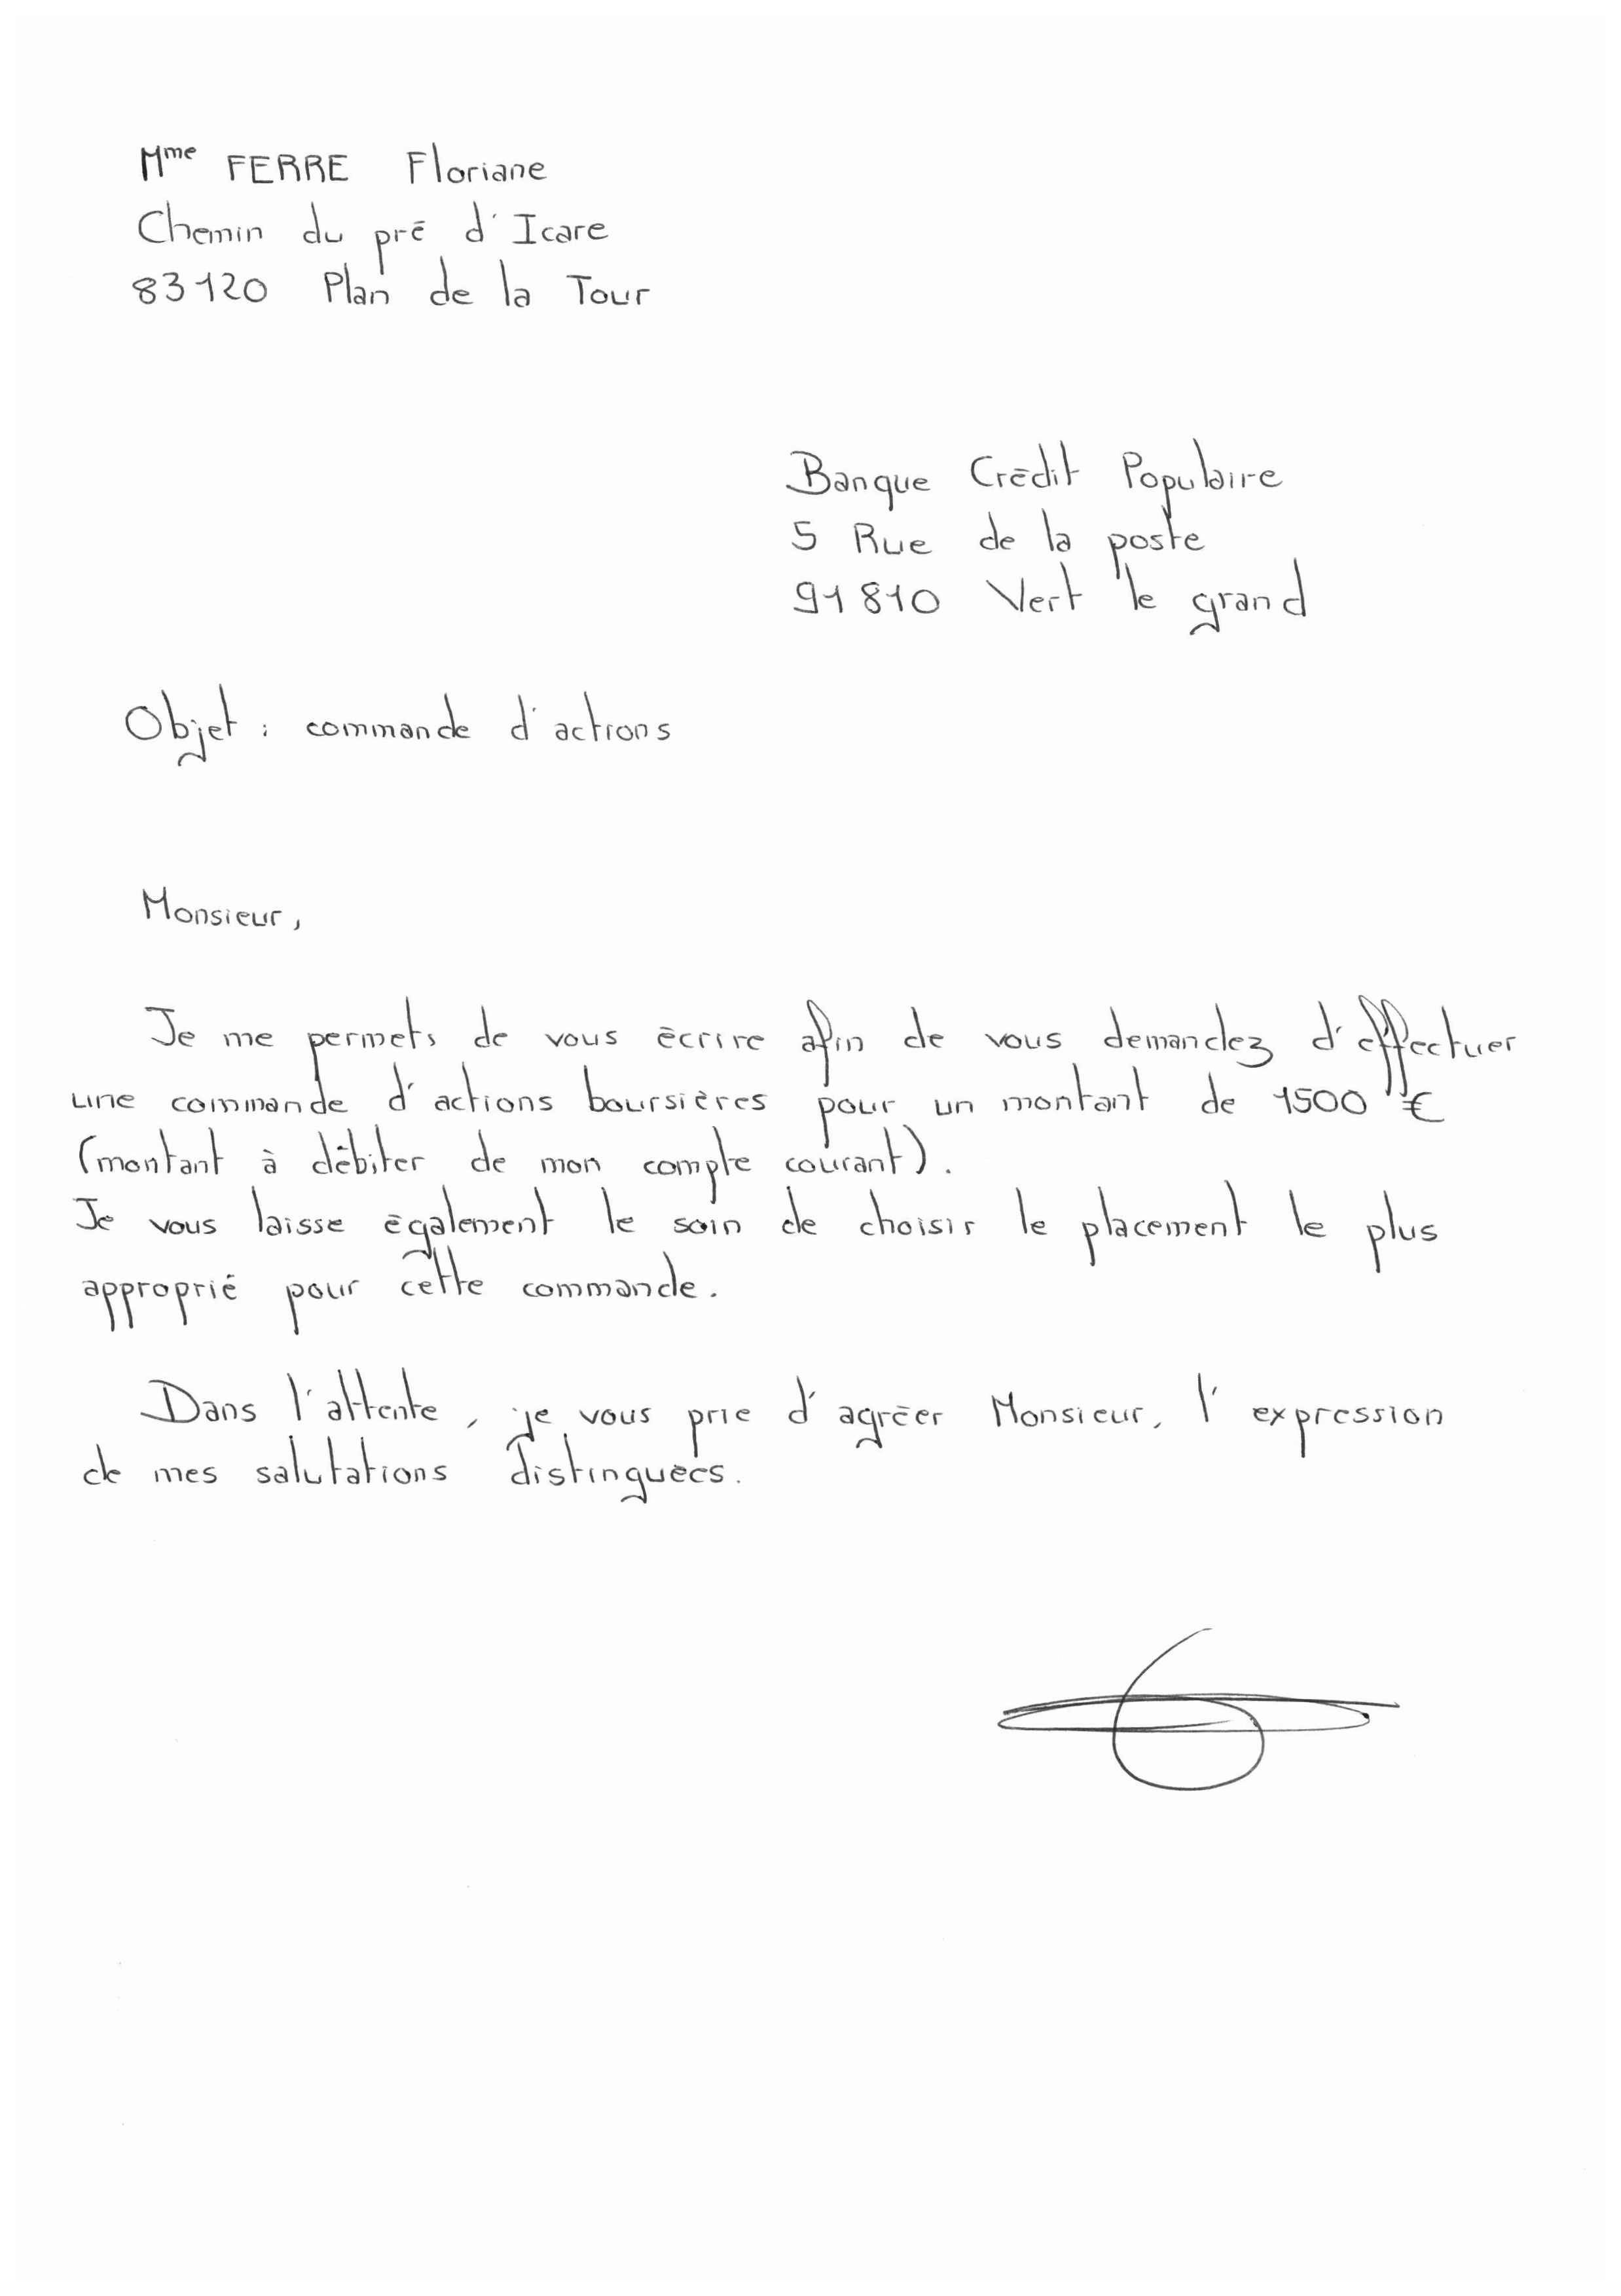 Mme FERRE Floriane
Chemin du pré d'Icare
83120 Plan de la Tour
Banque Crédit Populaire
5 Rue de la poste
91810 Vert le grand
Objet : commande d'actions
Monsieur,
Je me permets de vous écrire afin de vous demandez d'effectuer
une commande d'actions boursières pour un montant de 1500 €
(montant à débiter de mon compte courant).
Je vous laisse également le soin de choisir le placement le plus
approprié pour cette commande.
Dans l'attente, je vous prie d'agréer Monsieur, l'expression
de mes salutations distinguées.